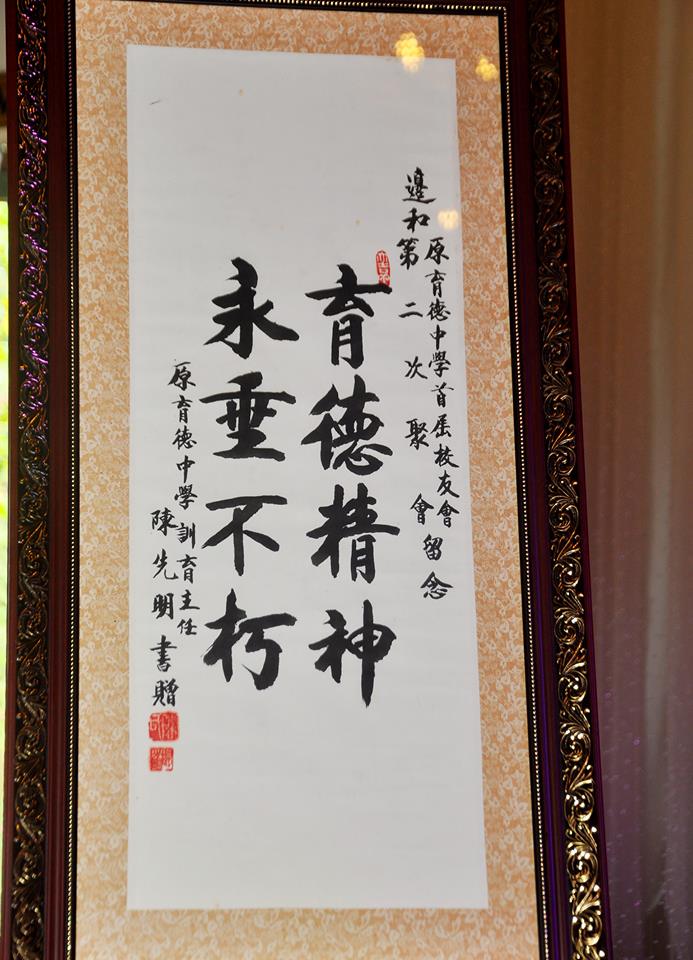 邊和
原育德中學首屆校友會
第二次聚會
留念
育德精神
永垂不朽
原育德中學訓育主任
陳先明書贈